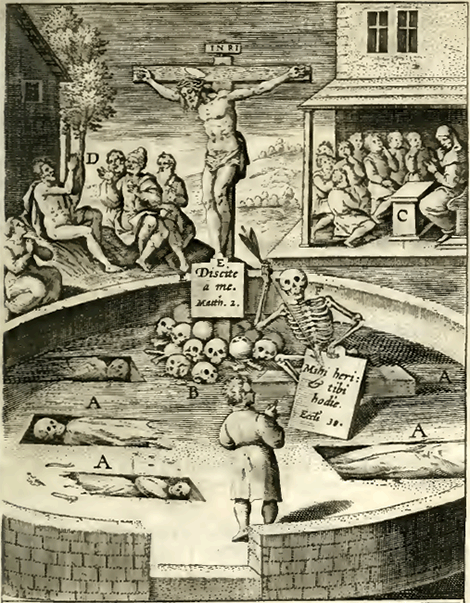 INRI
D
C
E
Discite
a me.
Matth. 2.
F
Mihi heri:
& tibi
hodie.
Eccli 38.
B
A
A
A
A